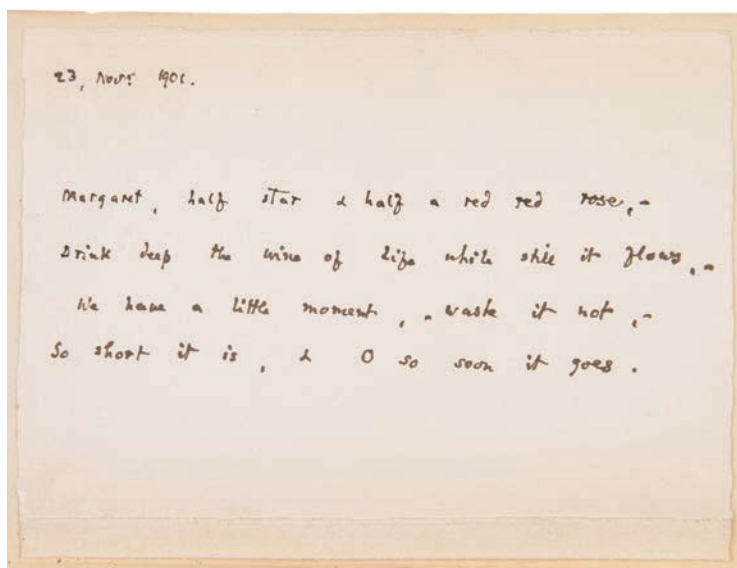 23, Novr. 1901.
Margaret, half star & half a red red rose,-
Drink deep the wine of life while still it flows,-
We have a little moment, - waste it not,-
So short it is, & O so soon it goes.